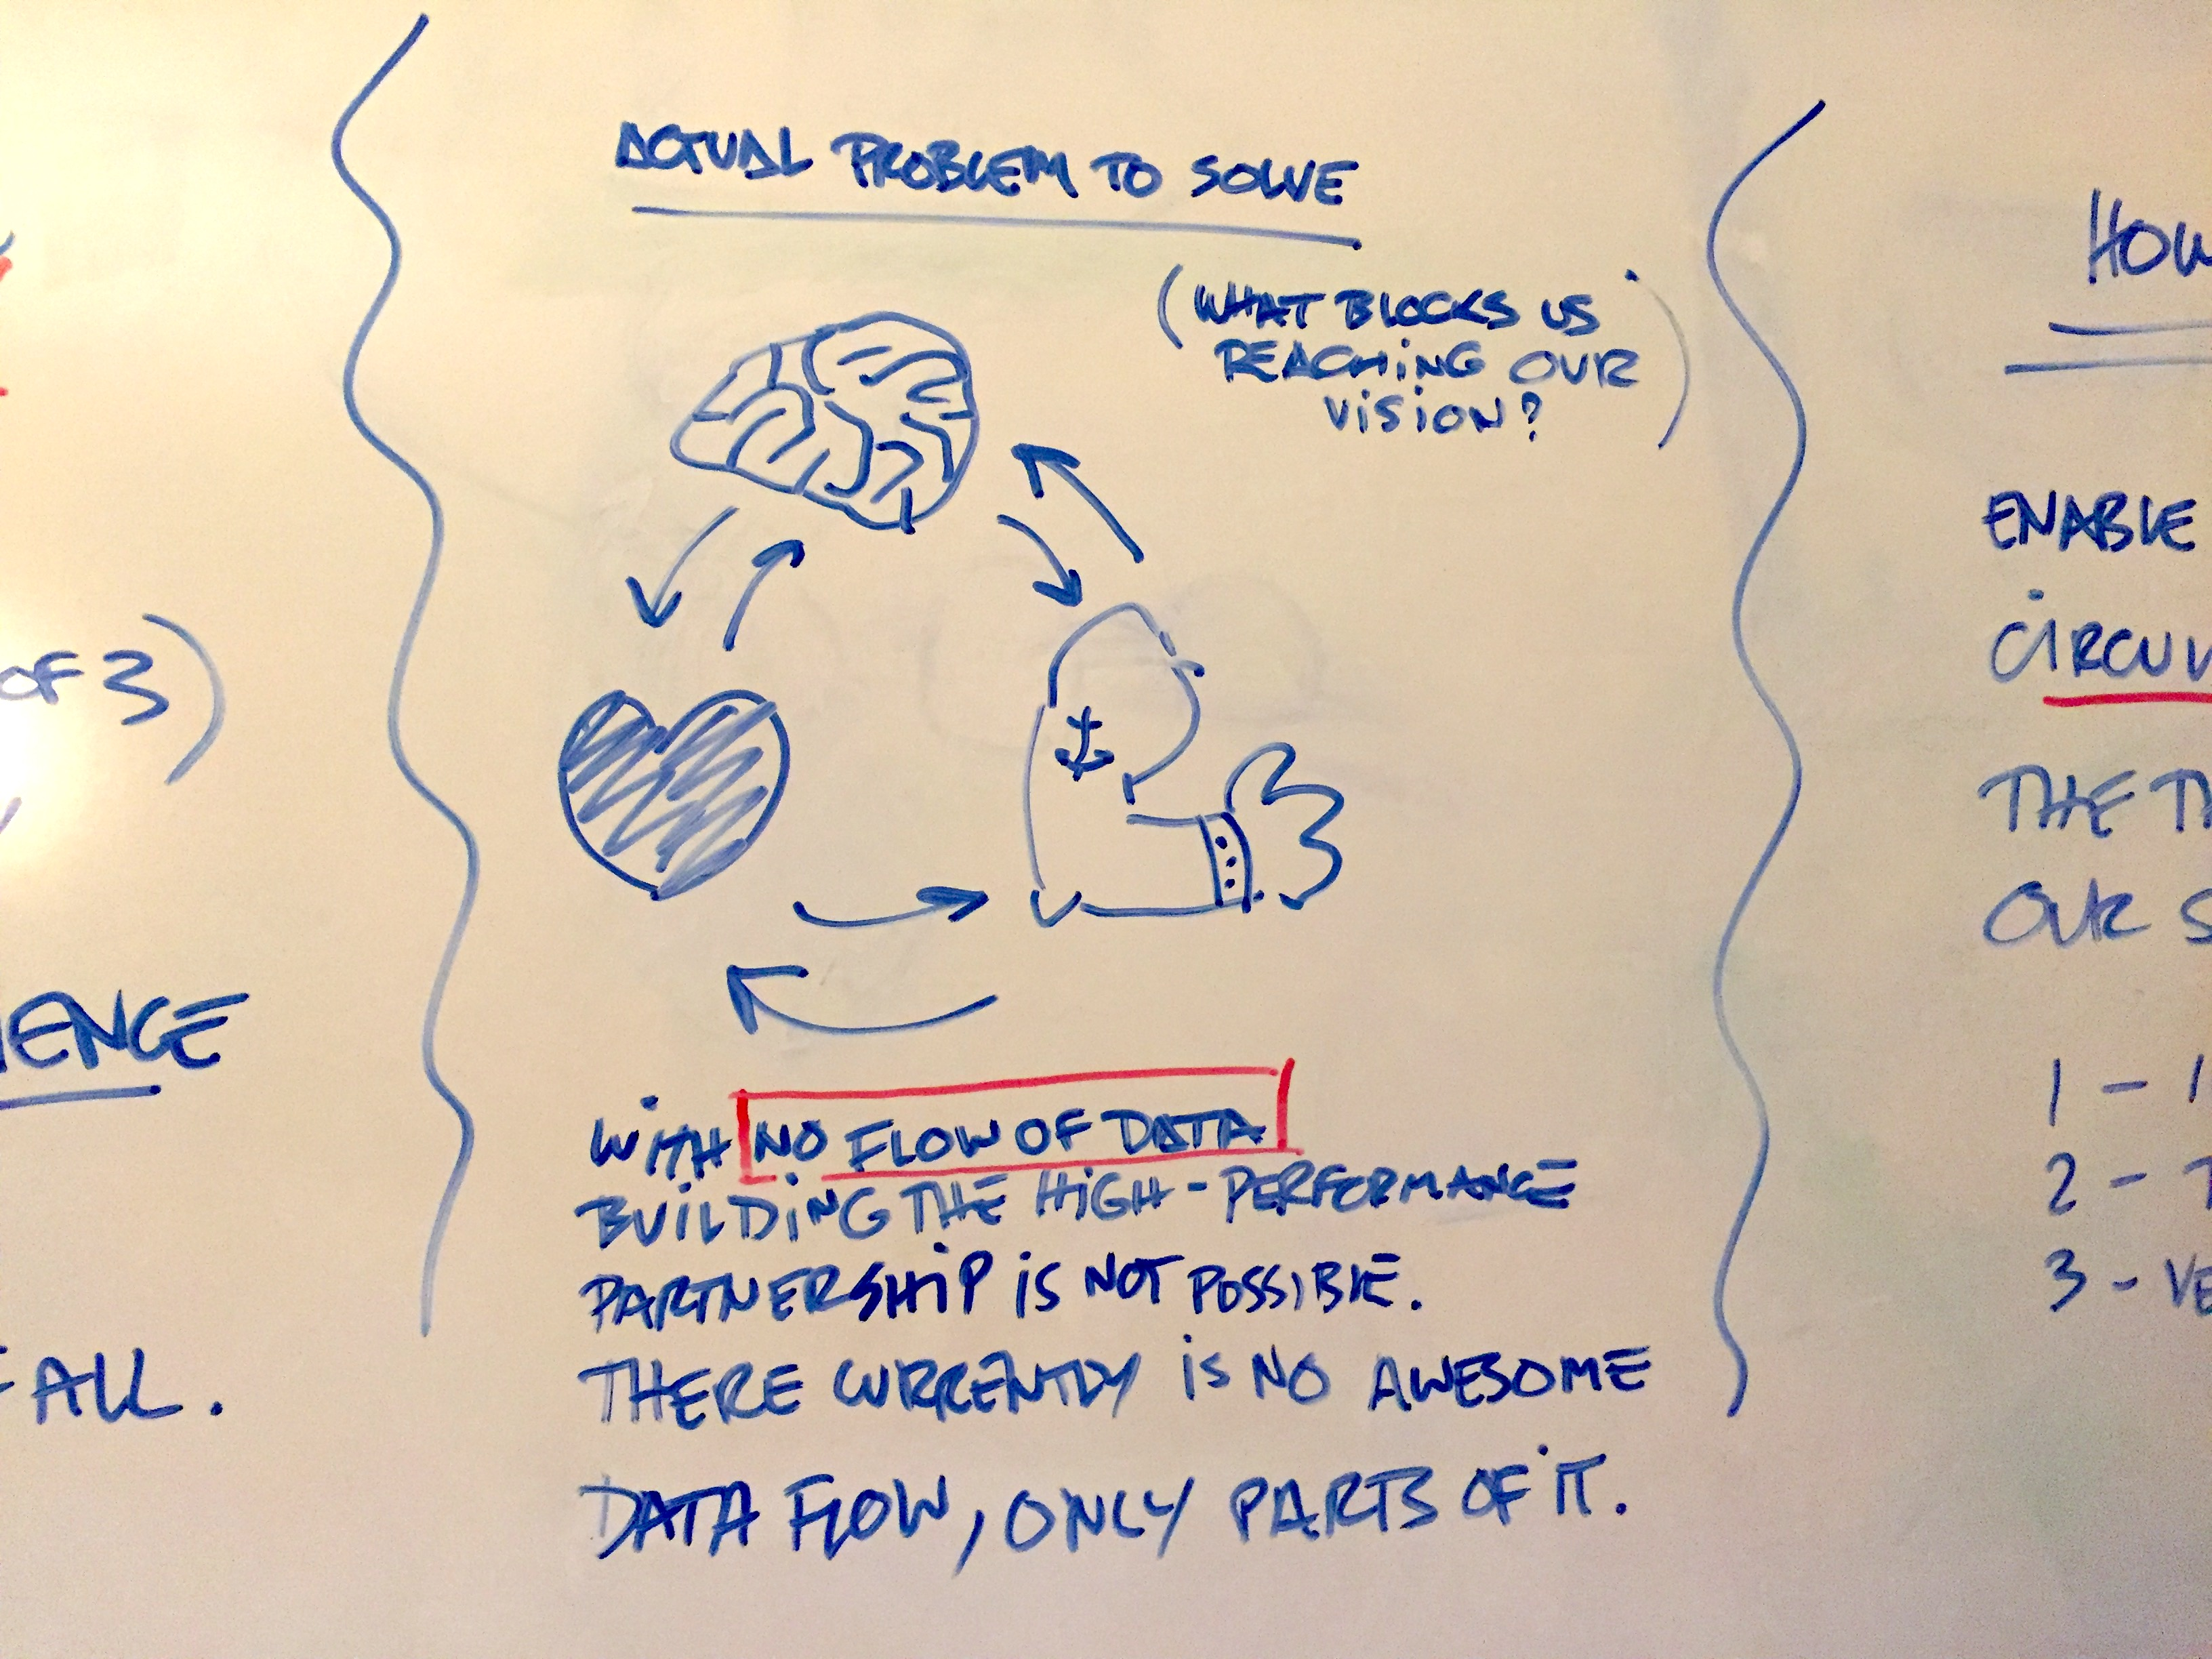 ACTUAL PROBLEM TO SOLVE
(WHAT BLOCKS US
REACHING OUR
VISION?)
WITH NO FLOW OF DATA
BUILDING THE HIGH-PERFORMANCE
PARTNERSHIP IS NOT POSSIBLE.
THERE CURRENTLY IS NO AWESOME
DATA FLOW, ONLY PARTS OF IT.
OF 3)
ALL.
HOW
ENABLE
THE
OUR
1 -
2 -
3 -